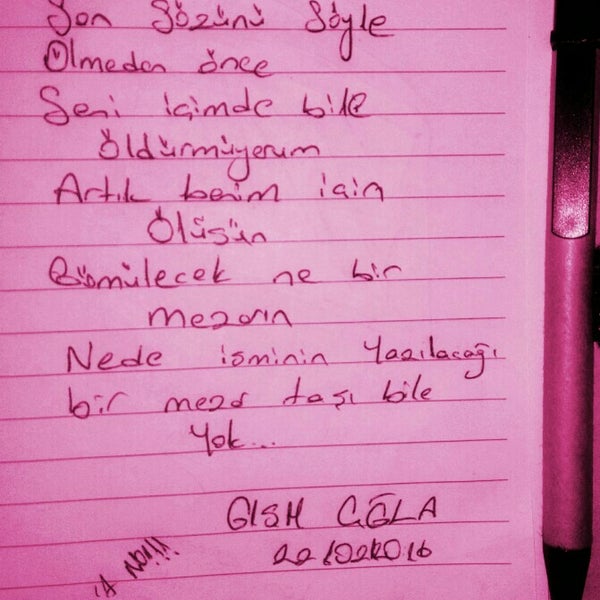 Son Sözünü Söyle
Ölmeden önce
Seni içimde bile
öldürmüyorum
Artık benim için
Ölüsün
Gömülecek ne bir
mezarın
Nede isminin Yazılacağı
bir mezar taşı bile
Yok...